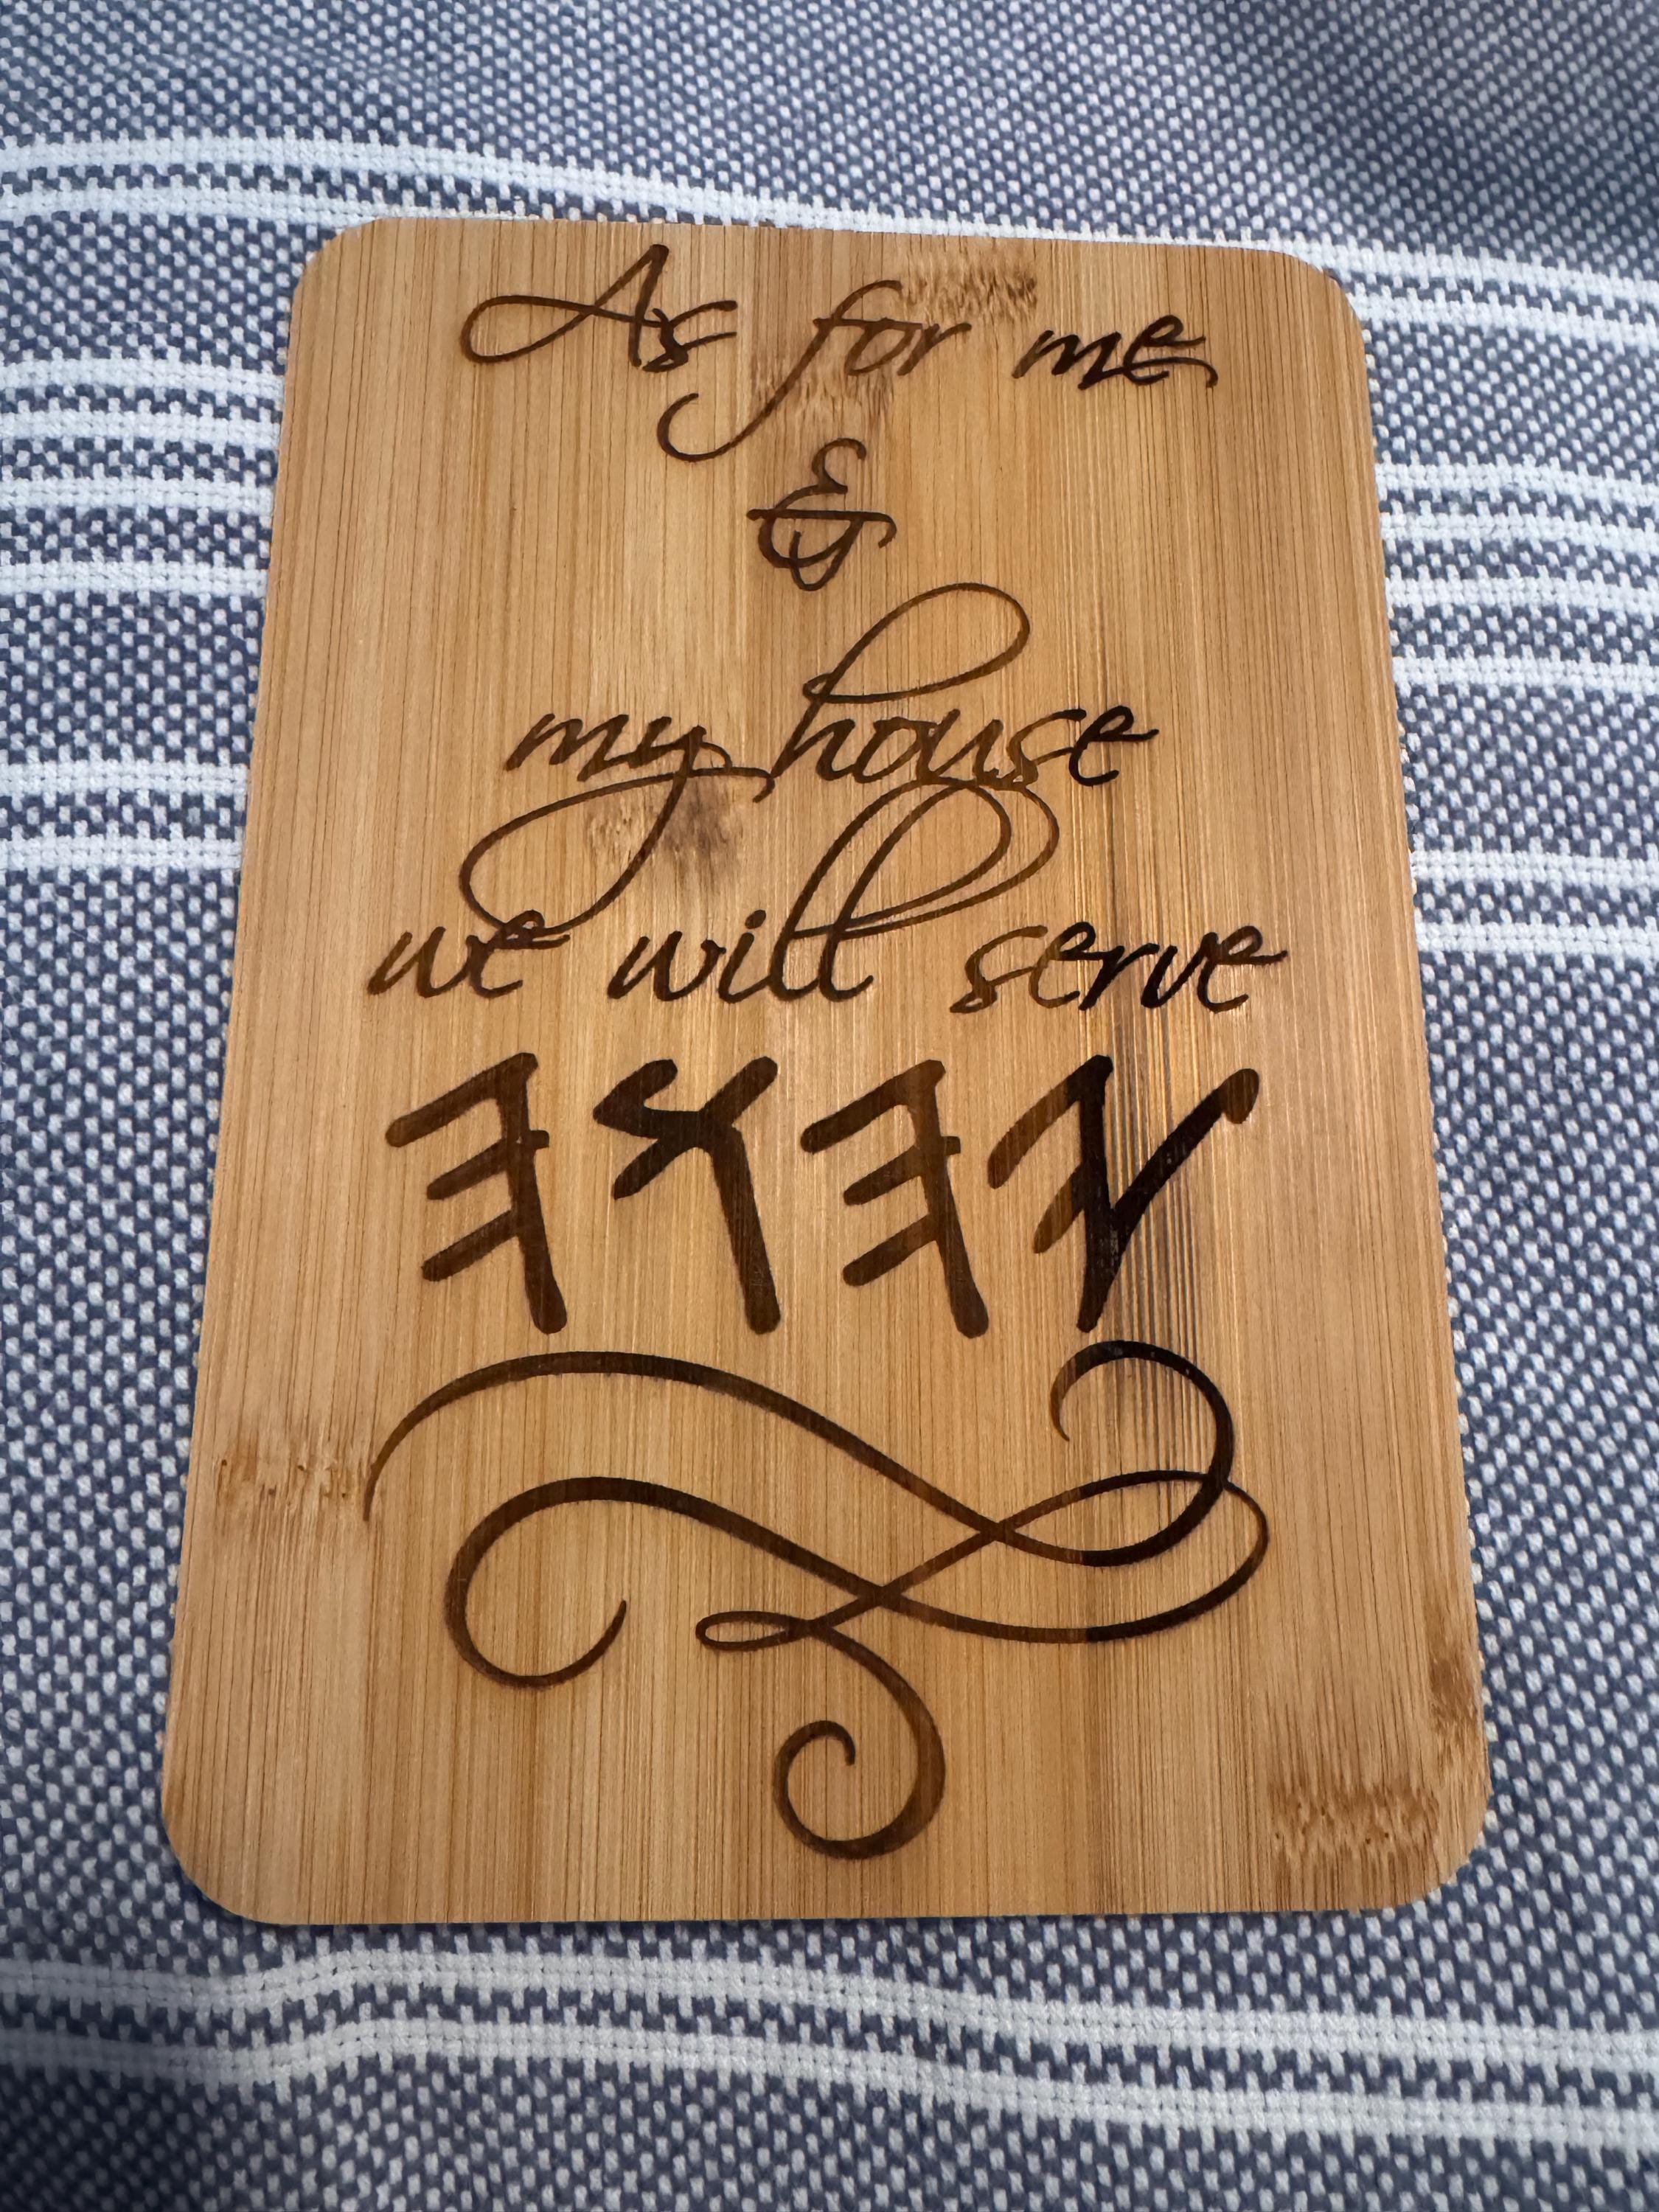 As for me
&
my house
we will serve
𐤉𐤄𐤅𐤄